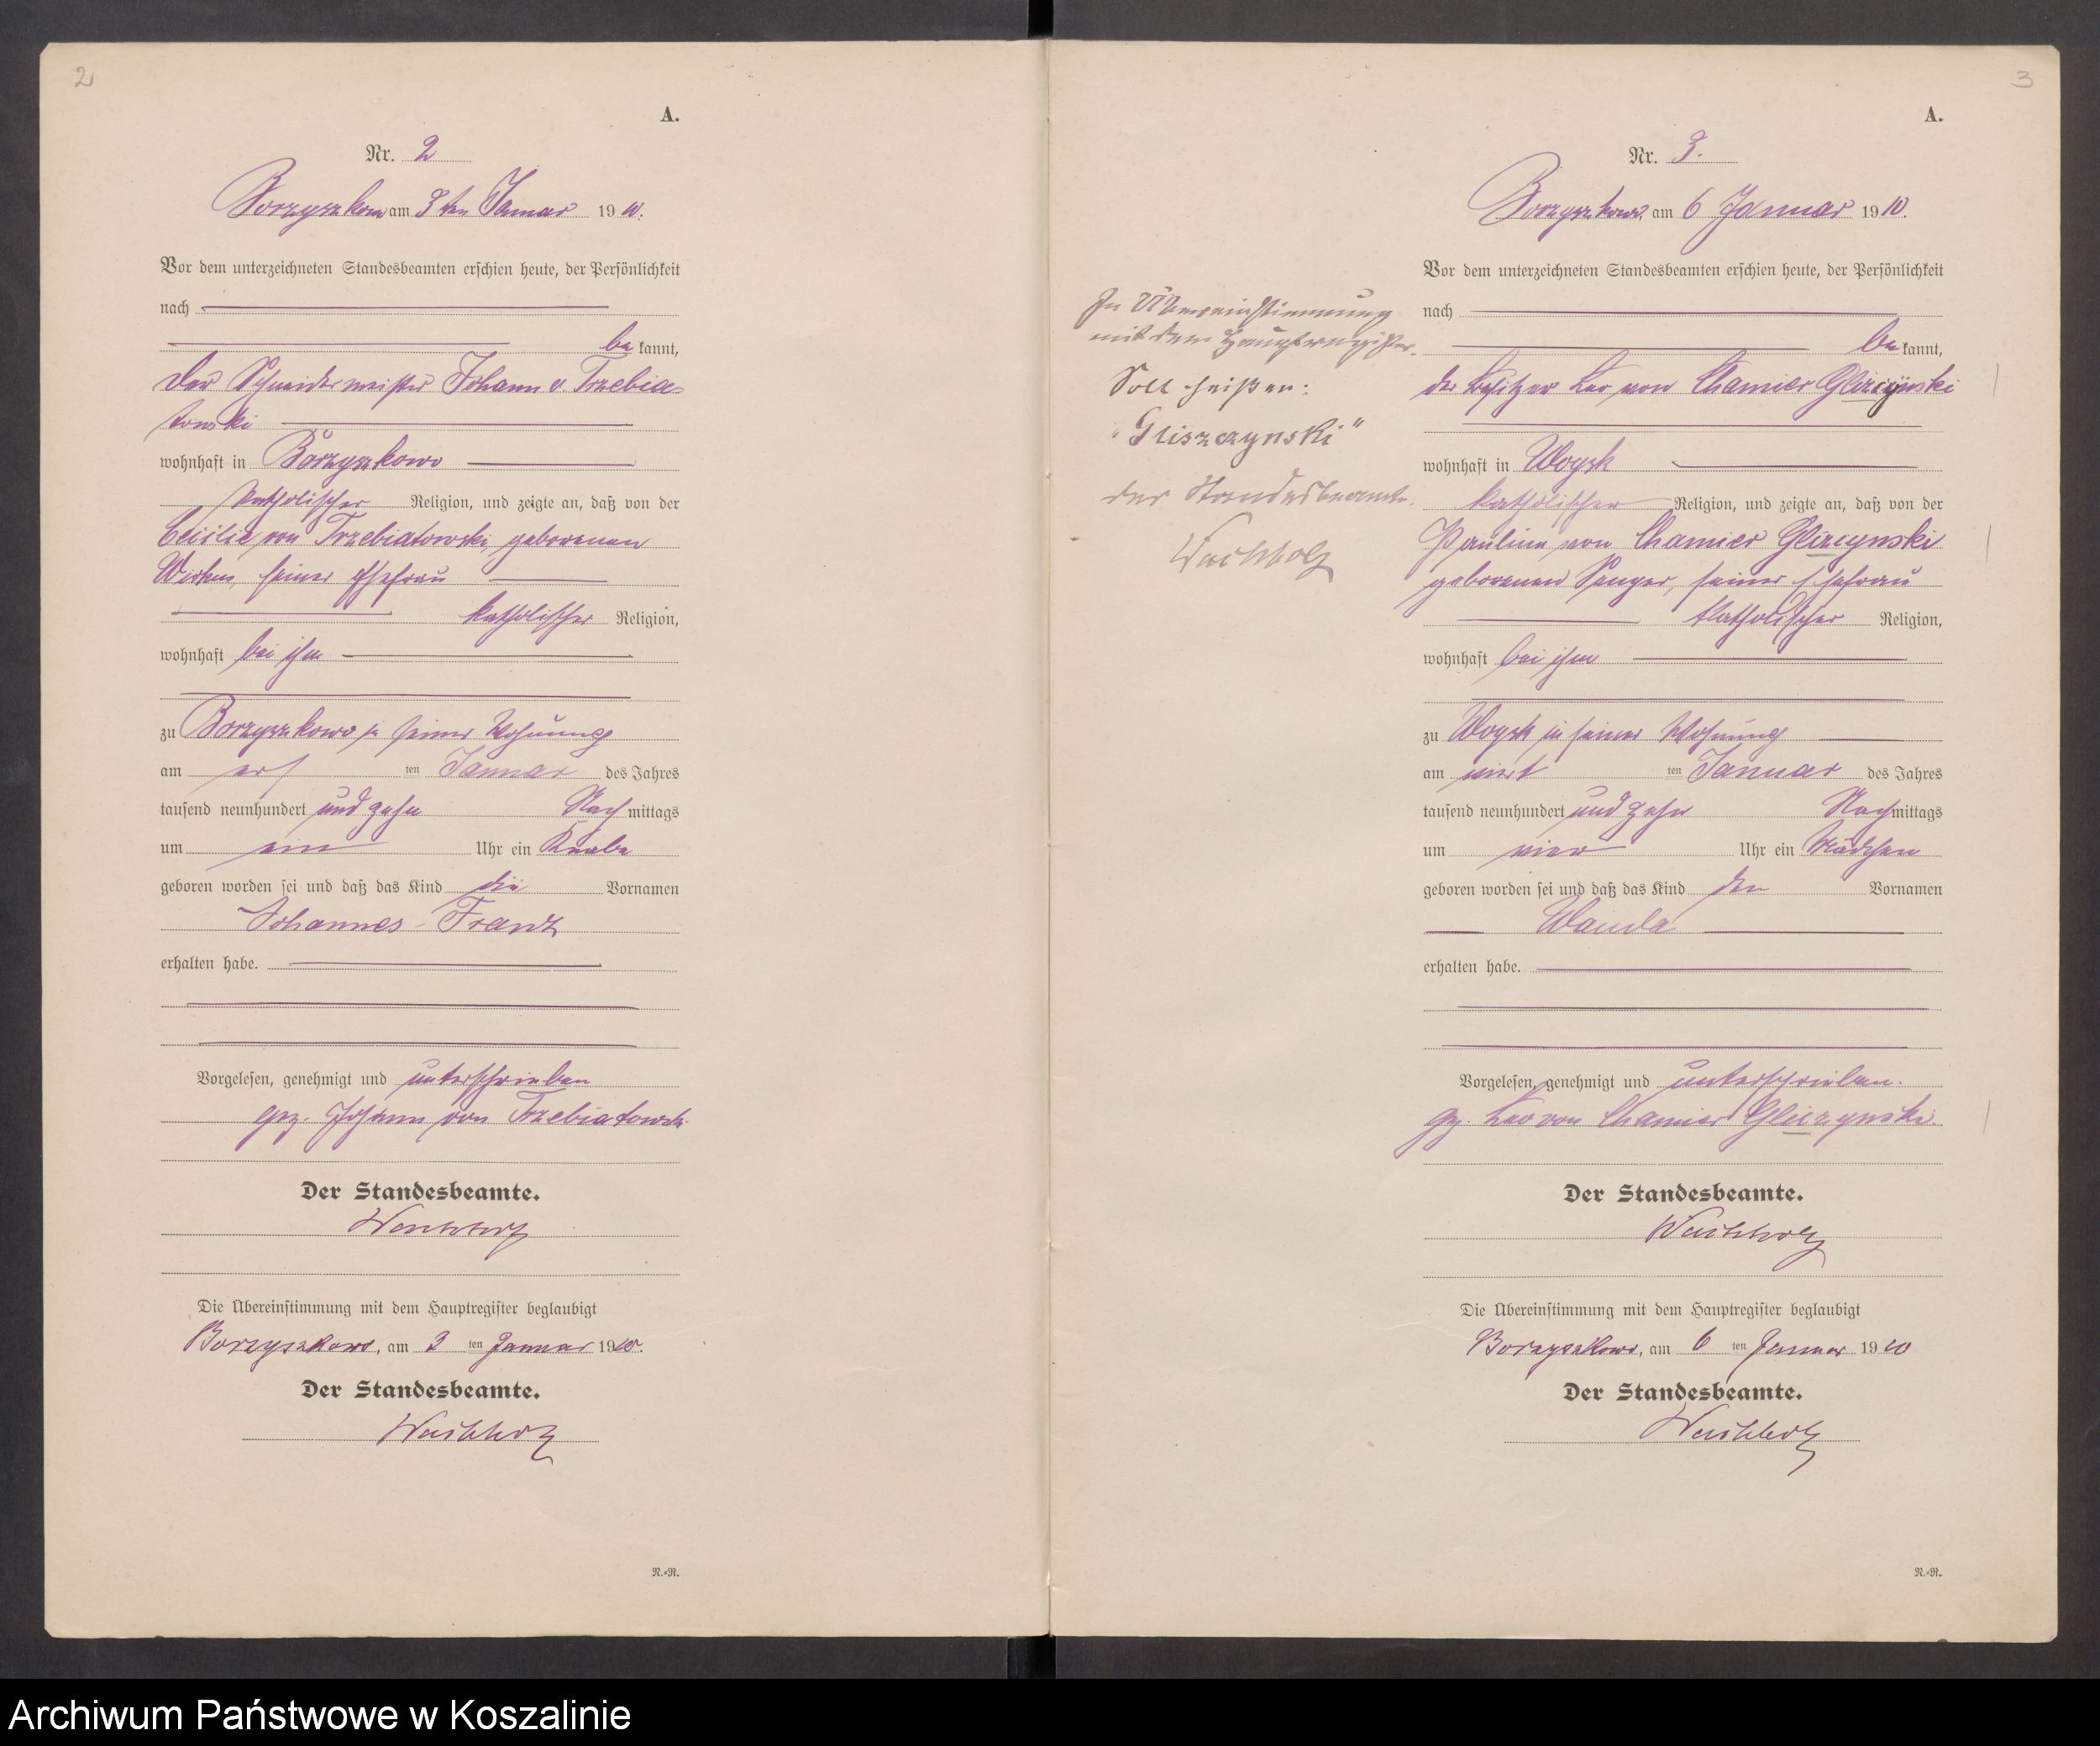 2
A.
Nr. 2
Borzyszkowo am 3 ten Januar 1910.
Vor dem unterzeichneten Standesbeamten erschien heute, der Persönlichkeit
nach
be kannt,
der Schneidermeister Johann v. Trzebia-
towski
wohnhaft in Borzyszkowo
katholischer Religion, und zeigte an, daß von der
Cecilie von Trzebiatowski, geborenen
seiner Ehefrau
katholischer Religion,
wohnhaft bei ihm
zu Borzyszkowo in seiner Wohnung
am erst ten Januar des Jahres
tausend neunhundert und zehn Nach mittags
um ein Uhr ein Knabe
geboren worden sei und daß das Kind die Vornamen
Johannes-Franz
erhalten habe.
Vorgelesen, genehmigt und unterschrieben
gez. Johann von Trzebiatowski
Der Standesbeamte.
Wachholz
Die Übereinstimmung mit dem Hauptregister beglaubigt
Borzyszkowo, am 3 ten Januar 1910.
Der Standesbeamte.
Wachholz
N.=R.
3
A.
Nr. 3.
Borzyszkowo, am 6 Januar 1910.
Vor dem unterzeichneten Standesbeamten erschien heute, der Persönlichkeit
nach
be kannt,
der Besitzer Leo von Chamier Glizczynski
wohnhaft in Woysk
katholischer Religion, und zeigte an, daß von der
Pauline von Chamier Glizcynski
geborenen Senger, seiner Ehefrau
katholischer Religion,
wohnhaft bei ihm
zu Woysk in seiner Wohnung
am viert ten Januar des Jahres
tausend neunhundert und zehn Nachmittags
um vier Uhr ein Mädchen
geboren worden sei und daß das Kind den Vornamen
Wanda
erhalten habe.
Vorgelesen, genehmigt und unterschrieben.
gez. Leo von Chamier Gliczynski.
Der Standesbeamte.
Wachholz
Die Übereinstimmung mit dem Hauptregister beglaubigt
Borzyszkowo, am 6 ten Januar 1910
Der Standesbeamte.
Wachholz
N.=R.
In Übereinstimmung
mit dem Hauptregister.
Soll heißen:
"Gliszczynski"
der Standesbeamte.
Wachholz
Archiwum Państwowe w Koszalinie